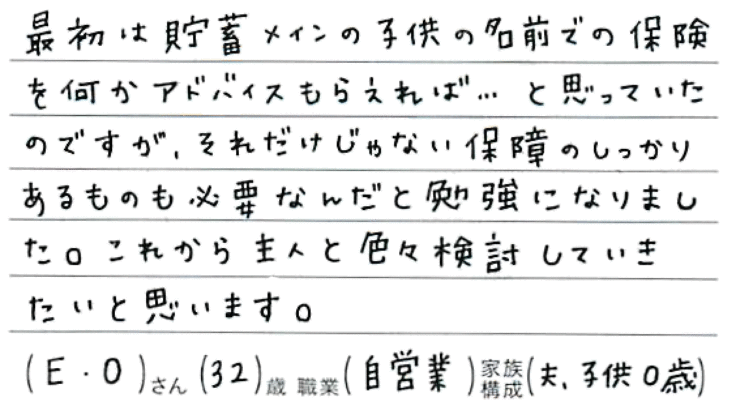 最初は貯蓄メインの子供の名前での保険
を何かアドバイスもらえれば…と思っていた
のですが、それだけじゃない保障のしっかり
あるものも必要なんだと勉強になりまし
た。これから主人と色々検討していき
たいと思います。
(E・O)さん(32)歳 職業(自営業)家族構成(夫、子供0歳)